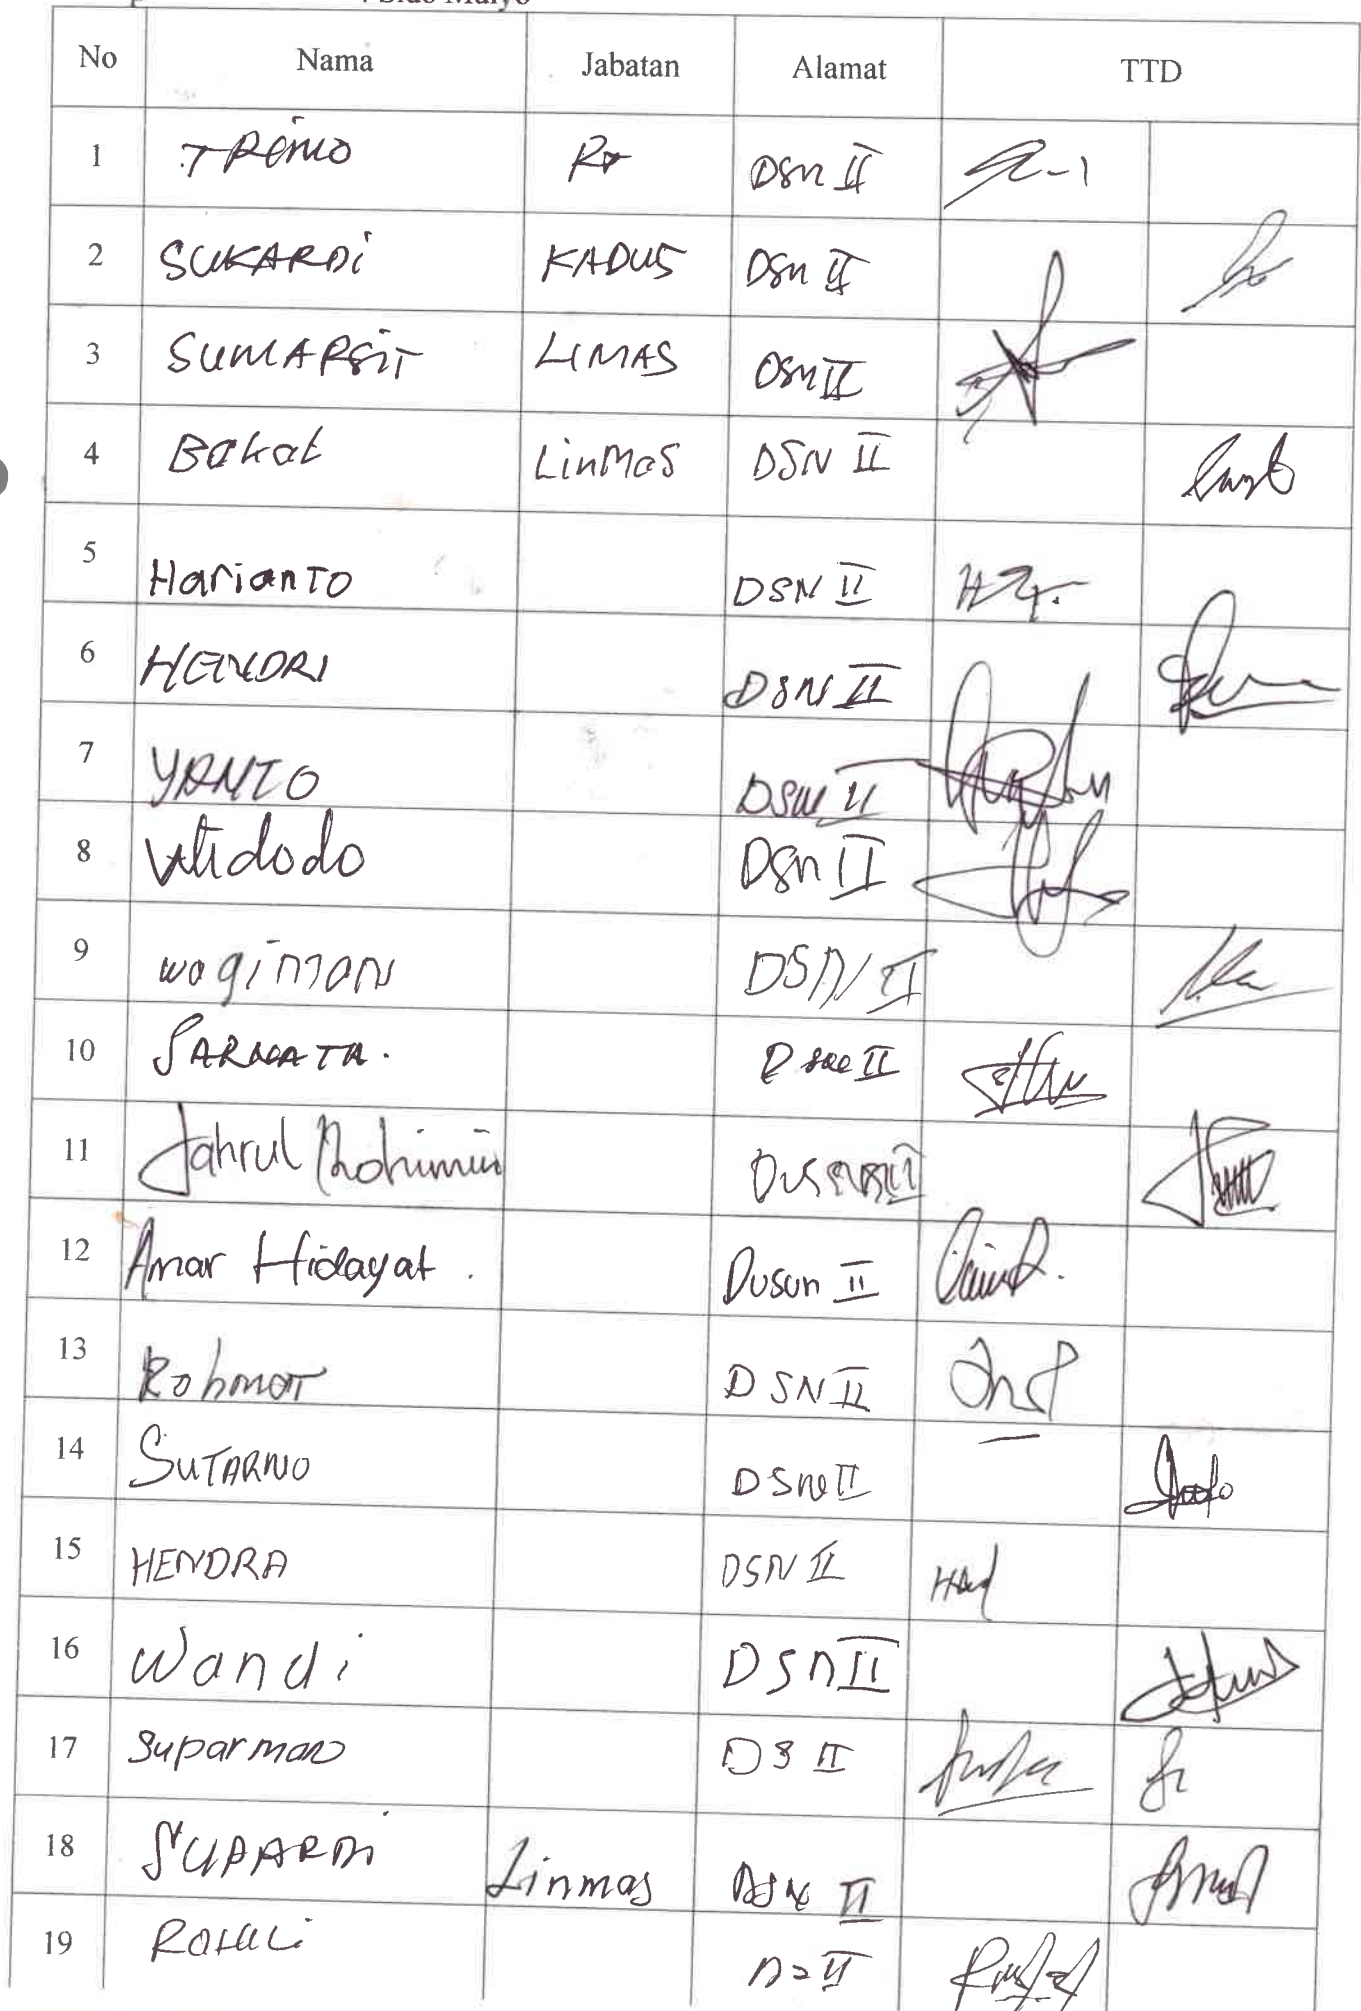 No Nama Jabatan Alamat TTD
1 TRIMO RT DSN II
2 SUKARDI KADUS DSN II
3 SUMARSIT LIMAS DSN II
4 Bakat LinMas DSN II
5 HariANTO DSN II
6 HENDRI DSN II
7 YANTO DSN II
8 Widodo DSN II
9 wagiman DSN II
10 DSN II
11 Jahrul Rohimin Dusun II
12 Amar Hidayat. Dusun II
13 Rohmat DSN II
14 SUTARNO DSN II
15 HENDRA DSN II
16 Wandi DSN II
17 Suparman DS II
18 SUPARDI Linmas DSN II
19 II